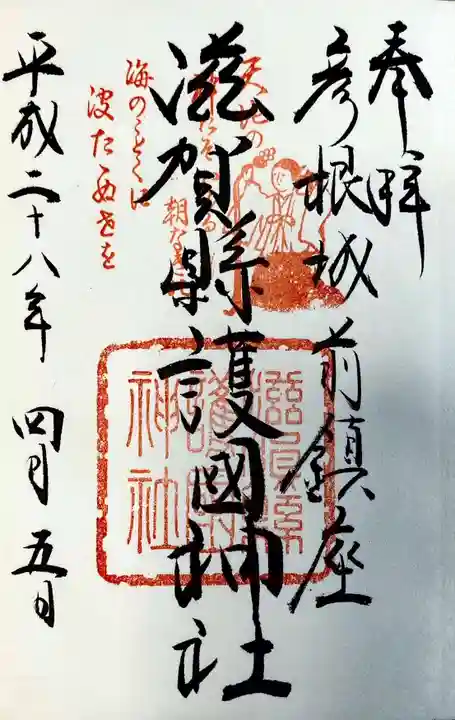 奉拜
彦根城前鎮座
滋賀縣護國神社
滋賀縣
護國
神社
天地の
朝な
海のことくに
波たぬせを
平成二十八年 四月 五日